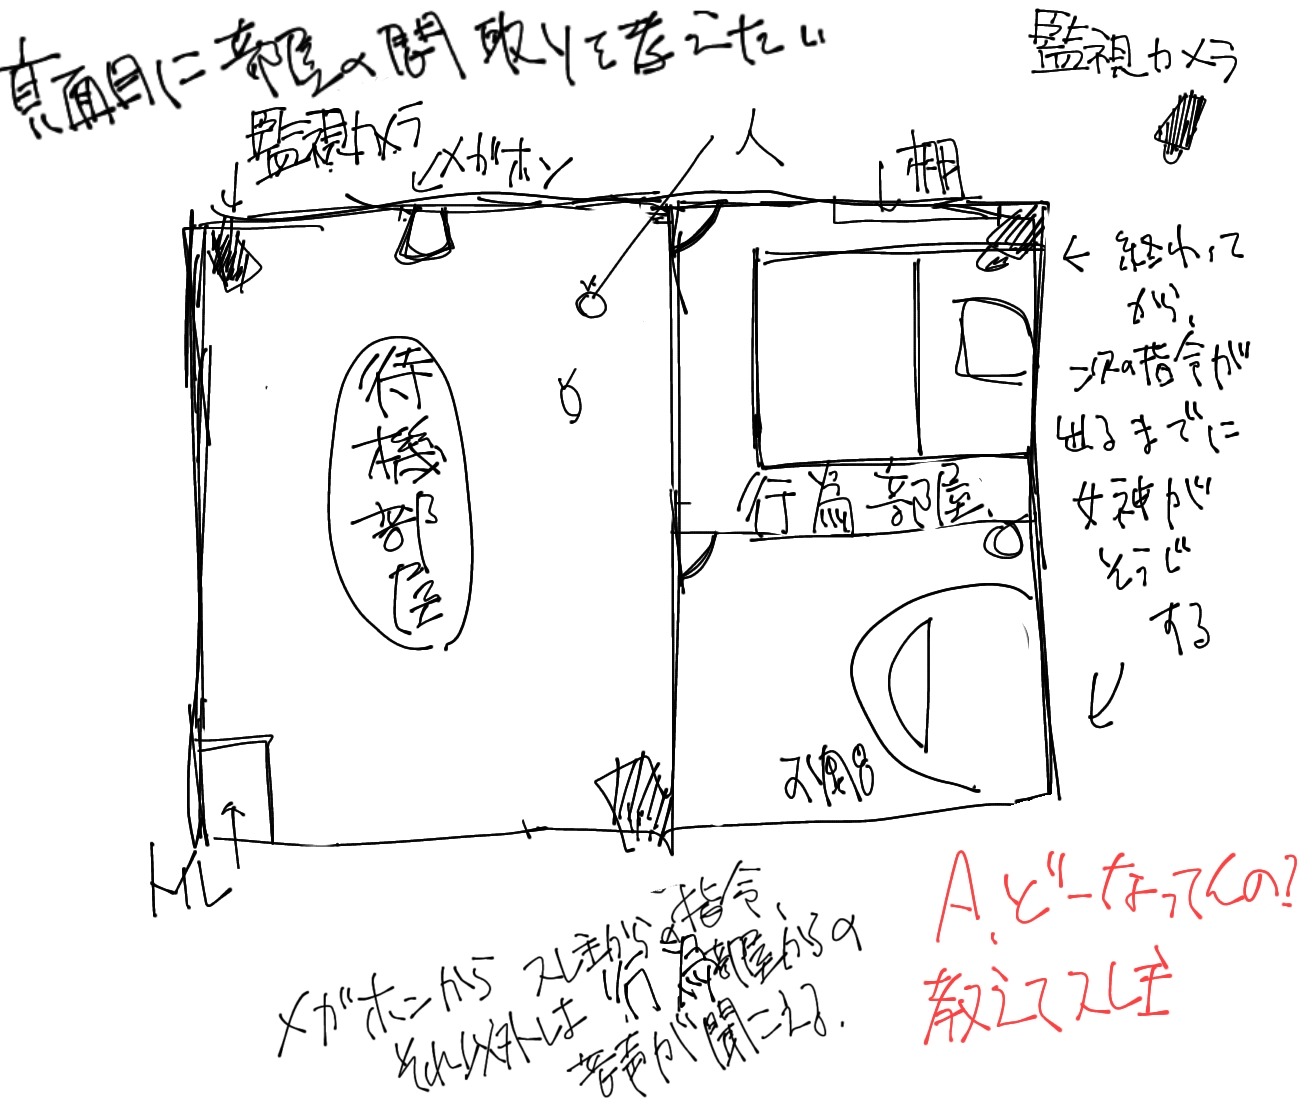 真面目に部屋の間取りを考えたい
監視カメラ
監視カメラ
メガホン
人
棚
待機部屋
行為部屋
お風呂
←終わって
から、
次の指令が
出るまでに
女神が
そうじ
する
メガホンからスレ主からの指令、
それ以外は行為部屋からの
音声が聞こえる.
A、どーなってんの?
教えてスレ主